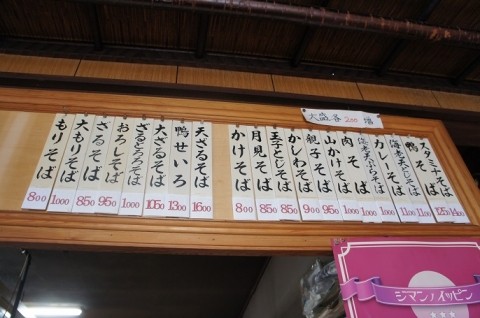 大盛各200増
もりそば 800
大もりそば 1000
ざるそば 850
おろしそば 950
ざるとろろそば 1000
大ざるそば 1050
鴨せいろ 1300
天ざるそば 1600
かけそば 800
月見そば 850
玉子とじそば 850
かしわそば 900
親子そば 950
山かけそば 1000
肉そば 1000
海老天ぷらそば 1000
カレーそば 1100
海老天とじそば 1100
鴨そば 1250
スタミナそば
シマンノイッピン